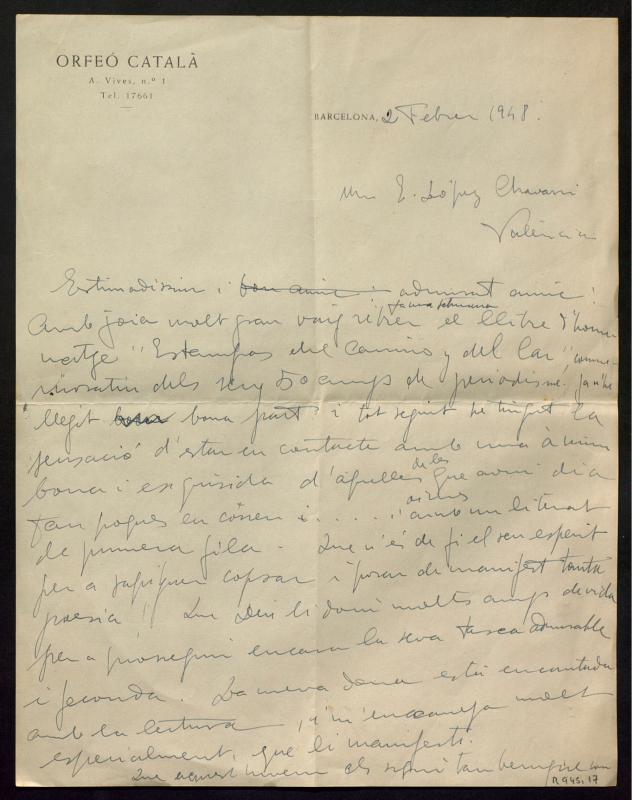 ORFEÓ CATALÀ
A. Vives, n.º 1
Tel. 17661
BARCELONA, 2 Febrer 1948.
E. López Chavarri
València
Estimadíssim i bon amic i admirat amic!
fa una setmana
Amb joia molt gran vaig rebre el llibre d'home
natge "Estampas del camino y del lar" comme
moratiu dels seus 50 anys de periodisme. Ja n'he
llegit bona bona part i tot seguit he tingut la
sensació d'estar en contacte amb una ànima
bona i exquisida d'aquelles que avui dia
tan poques en corren i..... amb un literat
de primera fila. Que n'és de fi el seu esperit
per a sapiguer copsar i posar de manifest tanta
poesia! Que Déu li doni molts anys de vida
per a prosseguir encara la seva tasca admirable
i fecunda. La meva dona està encantada
amb la lectura, i m'encarrega molt
especialment, que li manifesti.
Que aquest hivern els sigui tan benigne com
R 945.17